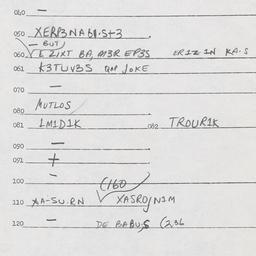 040 —
050 XERP3NABI.S+3
— BUT
060 EZIXT BA, M3R EP3S ER1Z 1N KA.S
061 K3TUVBS JOKE
070 —
080 MUTLOS
081 1M1D1K 082 TROUR1K
090 —
091 +
100 — (160
110 XA-SU.RN XASROJN1M
120 — DE BABUS (236